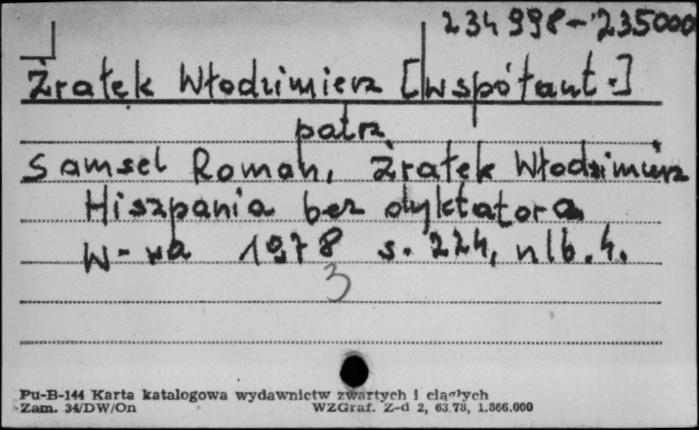 234 998 - 235000
Żrałek Włodzimierz [współaut.]
patrz
Samsel Roman, Żrałek Włodzimierz
Hiszpania bez dyktatora
W-wa 1978 s. 224, nlb. 4.
3
Pu-B-144 Karta katalogowa wydawnictw zwartych i ciągłych
Zam. 34/DW/On WZGraf. Z-d 2, 63.78, 1.866.000